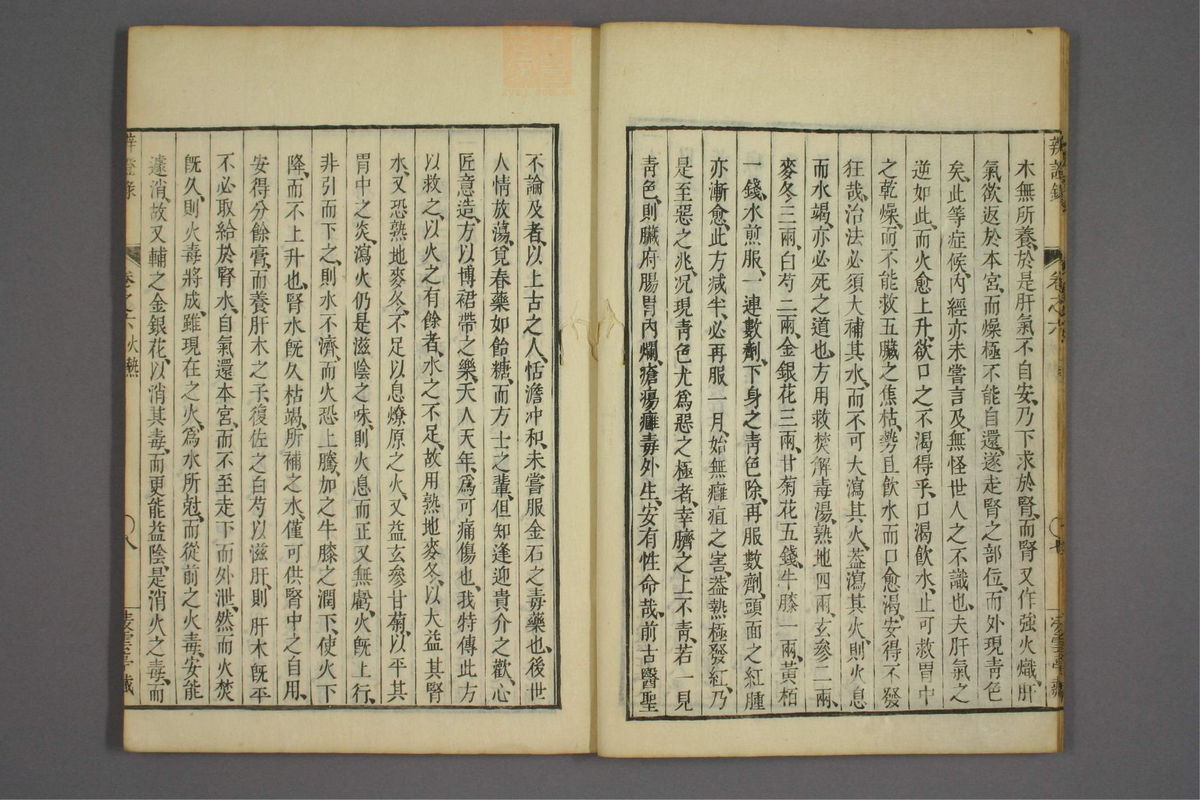 木無所養、於是肝氣不自安、乃下求於腎、而腎又作強火熾、肝
氣欲返於本宮、而燥極不能自還、遂走腎之部位、而外現靑色
矣、此等症候、內經亦未嘗言及、無怪世人之不識也、夫肝氣之
逆如此、而火愈上升、欲口之不渴得乎、口渴飮水、止可救胃中
之乾燥、而不能救五臟之焦枯、勢且飮水而口愈渴、安得不發
狂哉、治法必須大補其水、而不可大瀉其火、蓋瀉其火、則火息
而水竭、亦必死之道也、方用救焚解毒湯、熟地四兩、玄參二兩、
麥冬三兩、白芍二兩、金銀花三兩、甘菊花五錢、牛膝一兩、黃栢
一錢、水煎服、一連數劑、下身之靑色除、再服數劑、頭面之紅腫
亦漸愈、此方減半、必再服一月、始無癰疽之害、葢熱極發紅、乃
是至惡之兆、况現靑色尤爲惡之極者、幸臍之上不靑、若一見
靑色、則臟府腸胃內爛、瘡瘍癰毒外生、安有性命哉、前古醫聖
不論及者、以上古之人、恬澹冲和、未嘗服金石之毒藥也、後世
人情放蕩、覓春藥如飴糖、而方士之輩、但知逢迎貴介之歡、心
匠意造、方以博裙帶之樂、夭人天年、爲可痛傷也、我特傳此方
以救之、以火之有餘者、水之不足、故用熟地麥冬、以大益其腎
水、又恐熟地麥冬、不足以息燎原之火、又益玄參甘菊、以平其
胃中之炎、瀉火仍是滋陰之味、則火息而正又無虧、火旣上行、
非引而下之、則水不濟、而火恐上騰、加之牛膝之潤下、使火下
降、而不上升也、腎水旣久枯竭、所補之水、僅可供腎中之自用、
安得分餘膏、而養肝木之子、復佐之白芍以滋肝、則肝木旣平
不必取給於腎水、自氣還本宮、而不至走下而外泄、然而火焚
旣久、則火毒將成、雖現在之火、爲水所尅、而從前之火毒、安能
遽消、故又輔之金銀花、以消其毒、而更能益陰、是消火之毒、而
卷之六 火熱